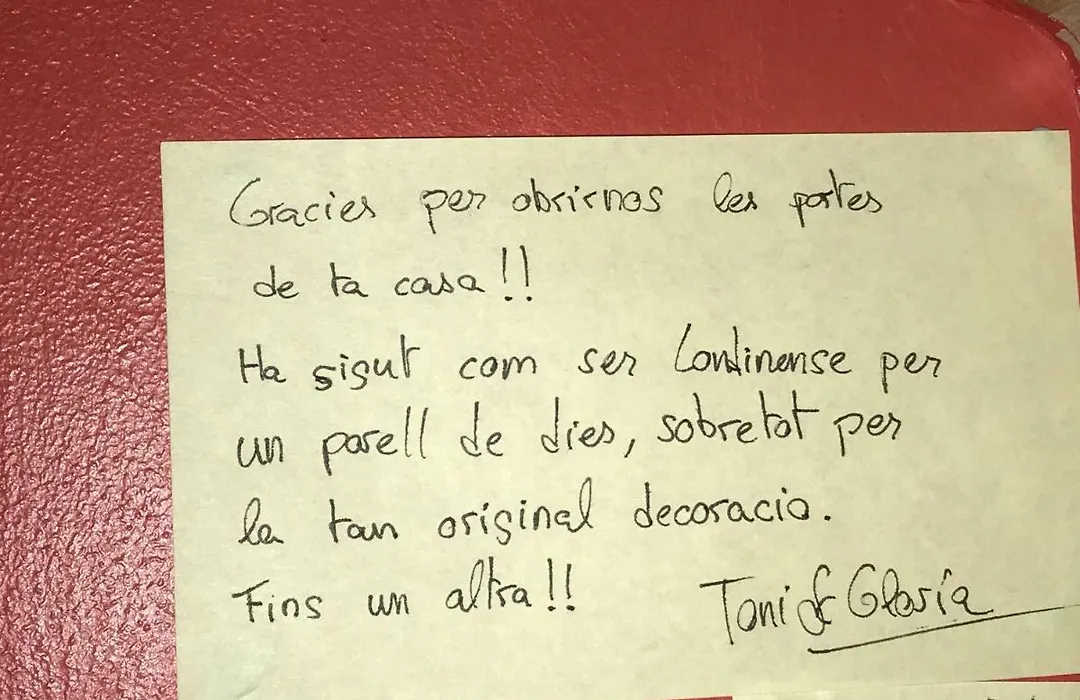 Gracies per obrirnos les portes
de ta casa!!
Ha sigut com ser Londinense per
un parell de dies, sobretot per
la tan original decoracio.
Fins un altra!! Toni & Gloria